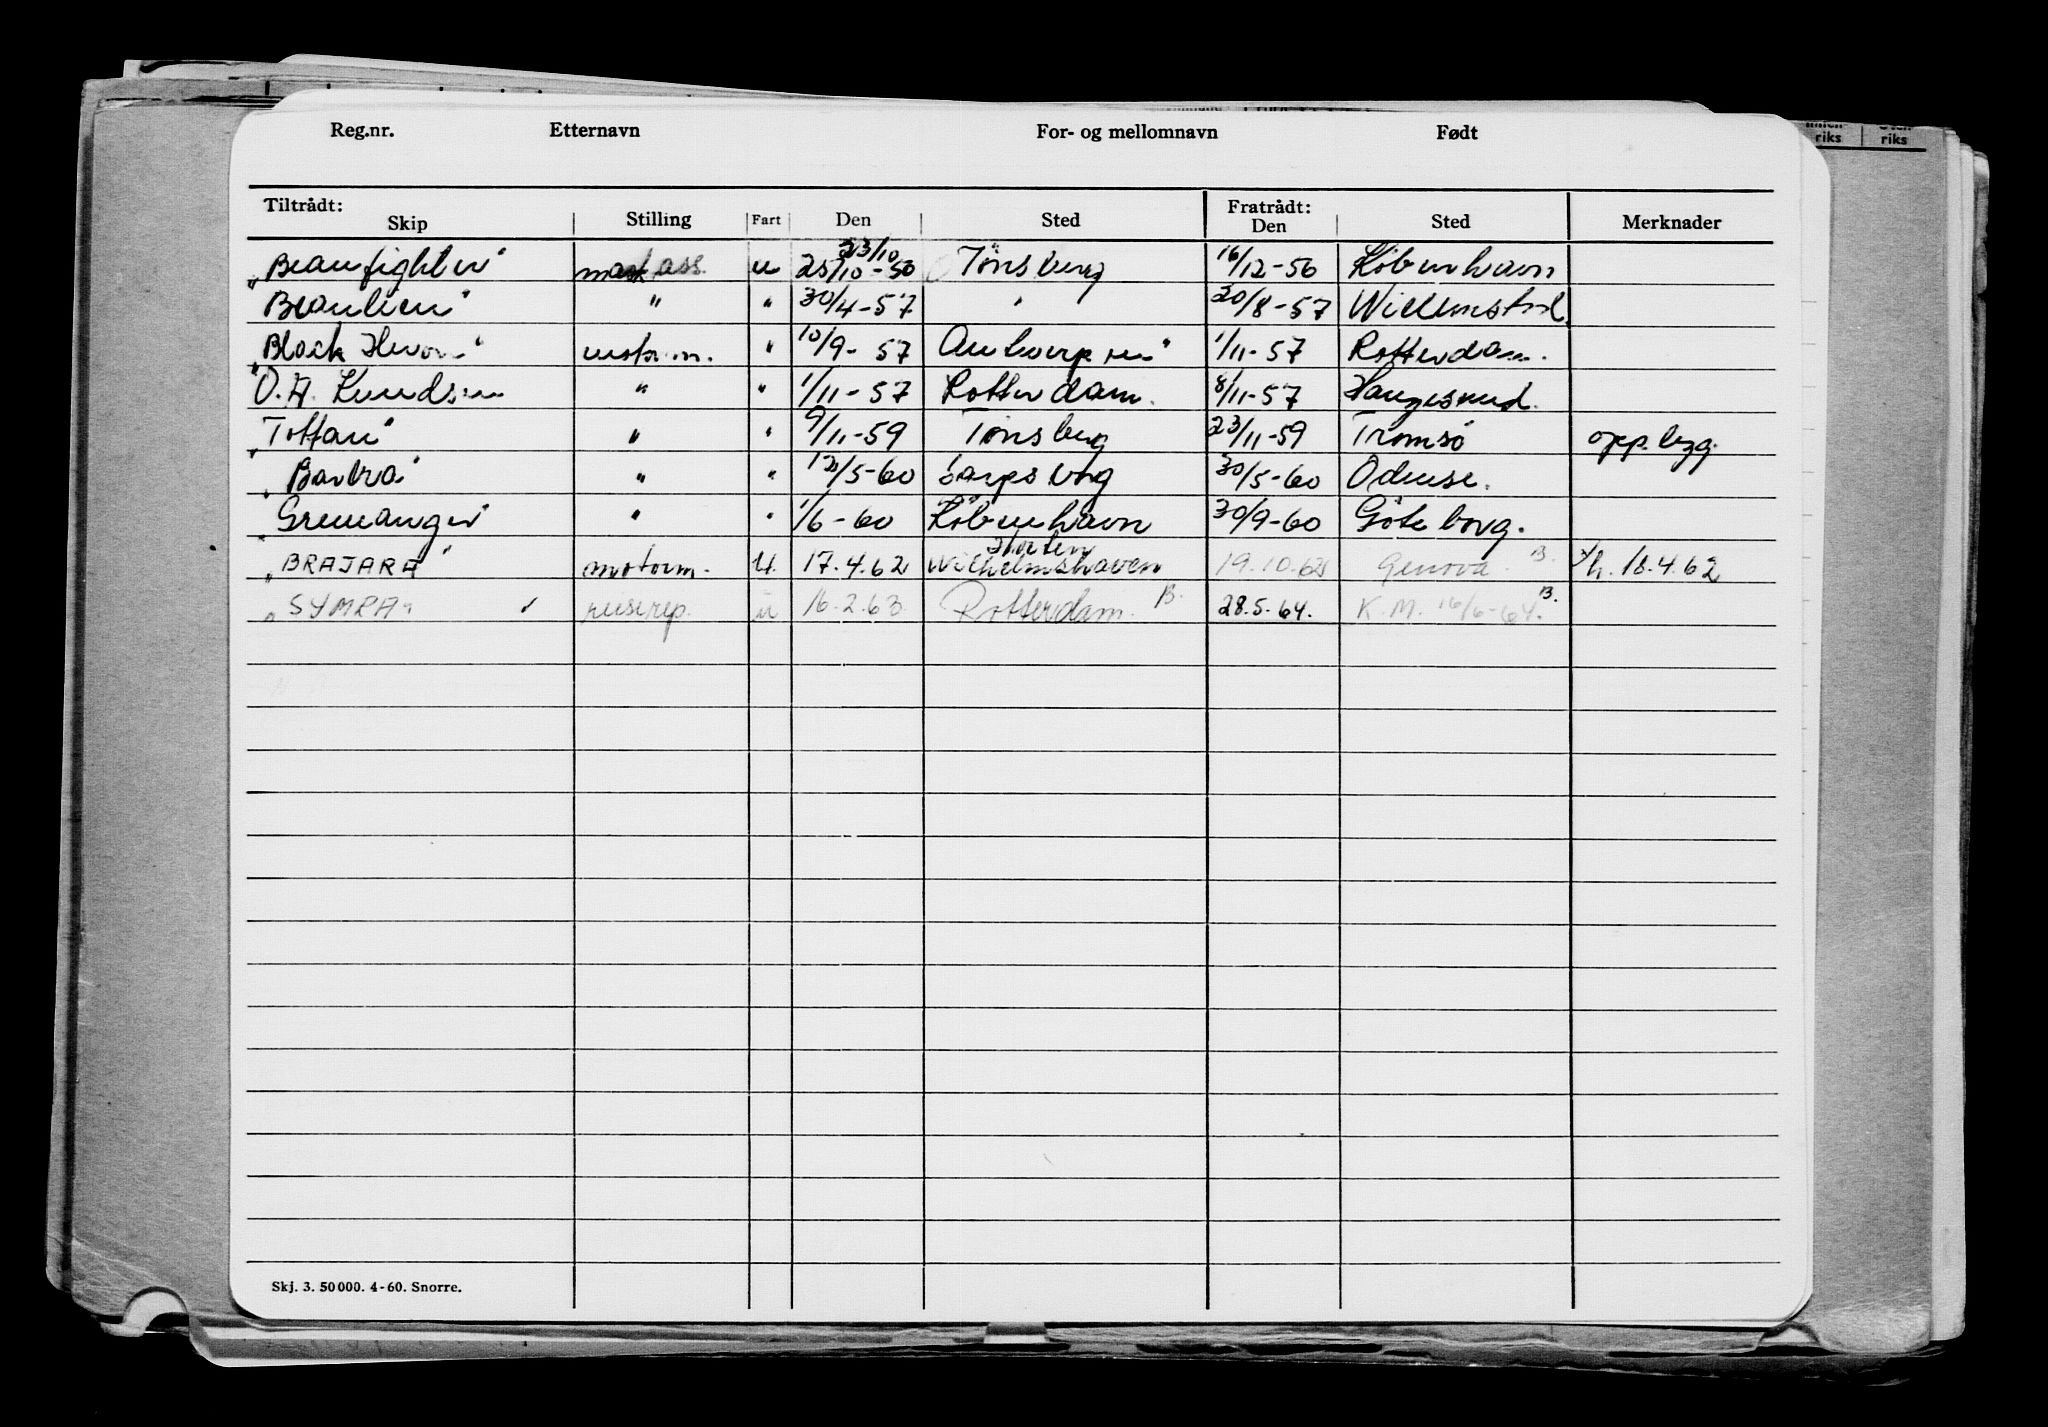 Reg.nr. Etternavn For- og mellomnavn Født
riks riks
Tiltrådt: Fratrådt:
Skip Stilling Fart Den Sted Den Sted Merknader
23/10
"Beaufighter" mask ass. u 25/10-56 Tønsberg 16/12-56 København
"Beaulieu" " " 30/4-57 " 30/8-57 Willemstad.
"Black Heron" motorm. " 10/9-57 Antwerpen 1/11-57 Rotterdam.
O.A. Knudsen " " 1/11-57 Rotterdam. 8/11-57 Haugesund.
"Tottan" " " 9/11-59 Tønsberg 23/11-59 Tromsø opp.legg.
"Bartra" " " 12/5-60 Sarpsborg 30/5-60 Odense.
"Gremanger" " " 1/6-60 København 30/9-60 Göteborg.
Horten
"BRAJARA" motorm. u. 17.4.62 Wilhelmshaven 19.10.62 Genova. B. 18.4.62
"SYMRA" reserep. u 16.2.63. Rotterdam. B. 28.5.64. K.M. 16/6-64. B.
Skj. 3. 50000. 4-60. Snorre.